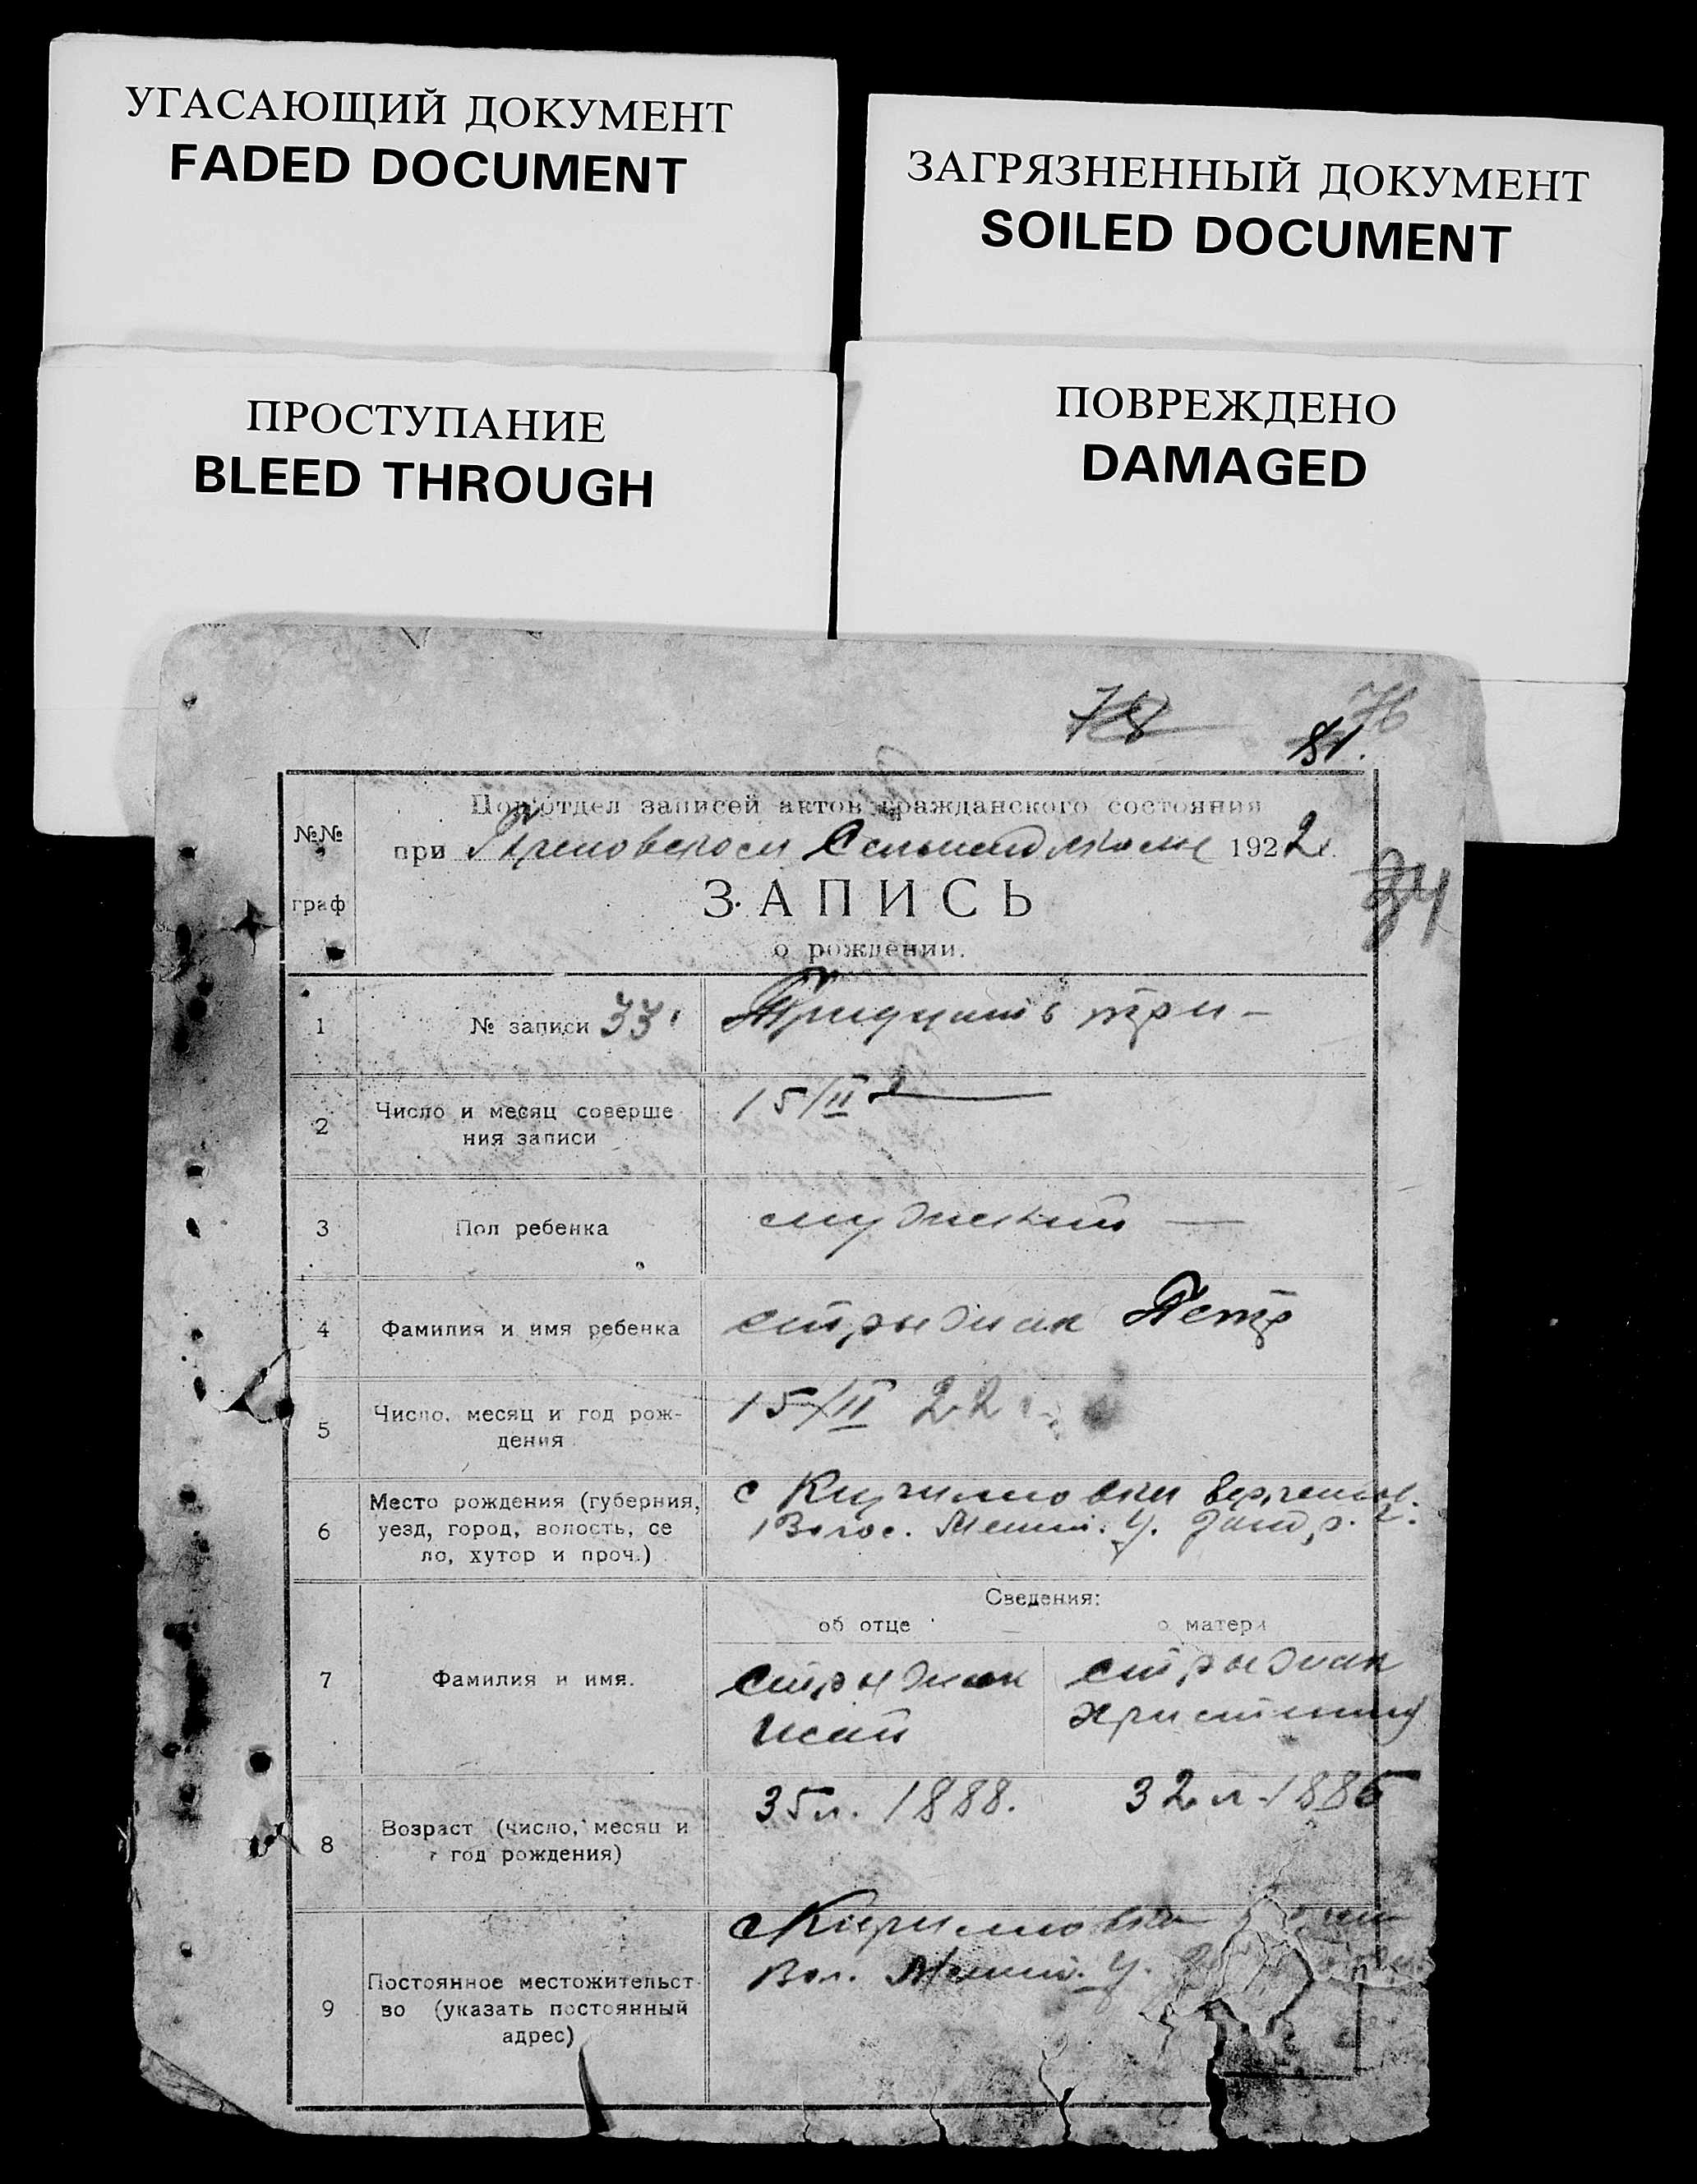 УГАСАЮЩИЙ ДОКУМЕНТ
FADED DOCUMENT
ЗАГРЯЗНЕННЫЙ ДОКУМЕНТ
SOILED DOCUMENT
ПРОСТУПАНИЕ
BLEED THROUGH
ПОВРЕЖДЕНО
DAMAGED
78
76
81.
№№
граф
Подотдел записей актов гражданского состояния
при 1922.
34
ЗАПИСЬ
о рождении.
1
№ записи 33
Тридцать три -
2
Число и месяц соверше
ния записи
15/II
3
Пол ребенка
мужский —
4
Фамилия и имя ребенка
стрыжак Петр
5
Число, месяц и год рож-
дения
15/II 22
6
Место рождения (губерния,
уезд, город, волость, се
ло, хутор и проч.)
с
Волос. У.
Сведения:
об отце
о матери
7
Фамилия и имя.
стрыжак
Исай
стрыжак
христина
8
Возраст (число, месяц и
год рождения)
35 л. 1888.
32 л 1886
9
Постоянное местожительст-
во (указать постоянный
адрес)
с
Вол. У.